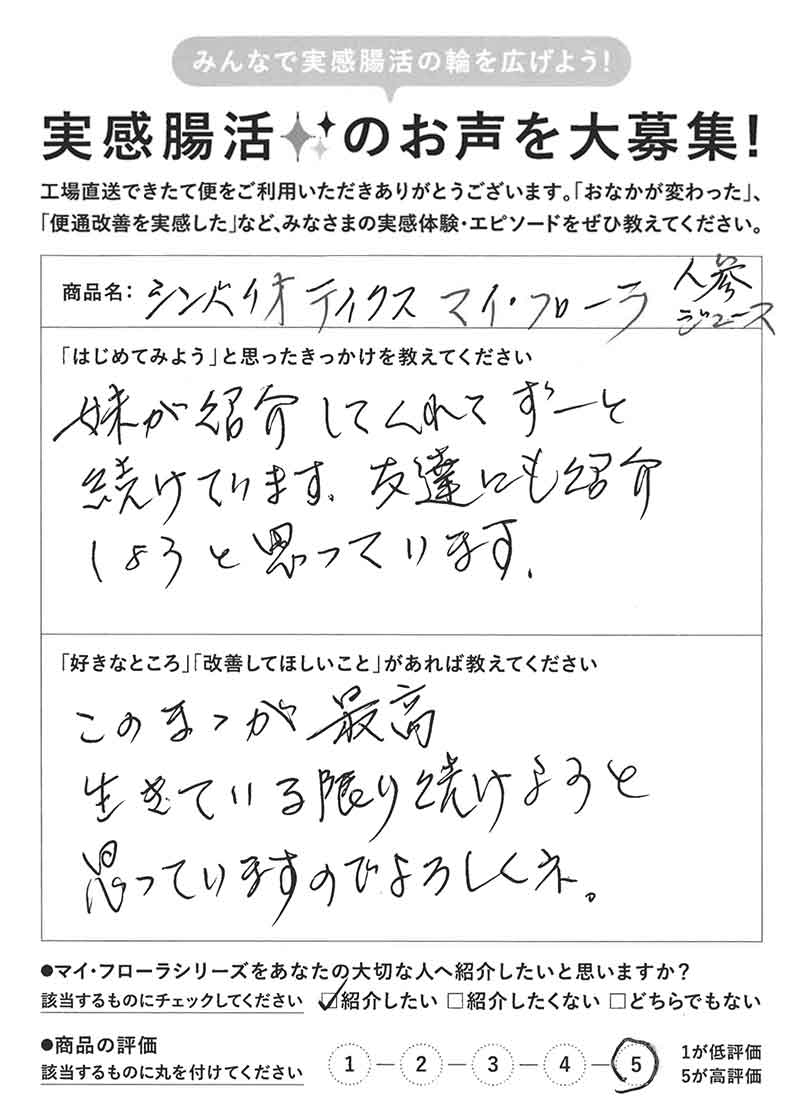 みんなで実感腸活の輪を広げよう!
実感腸活のお声を大募集!
工場直送できたて便をご利用いただきありがとうございます。「おなかが変わった」、
「便通改善を実感した」など、みなさまの実感体験・エピソードをぜひ教えてください。
商品名: シンバイオティクス マイ・フローラ 人参
ジュース
「はじめてみよう」と思ったきっかけを教えてください
妹が紹介してくれてずーと
続けています。友達にも紹介
しようと思っています。
「好きなところ」「改善してほしいこと」があれば教えてください
このまゝが最高
生きている限り続けようと
思っていますのでよろしくネ。
●マイ・フローラシリーズをあなたの大切な人へ紹介したいと思いますか?
該当するものにチェックしてください ☑紹介したい □紹介したくない □どちらでもない
●商品の評価
該当するものに丸を付けてください 1 — 2 — 3 — 4 — 5 1が低評価
5が高評価